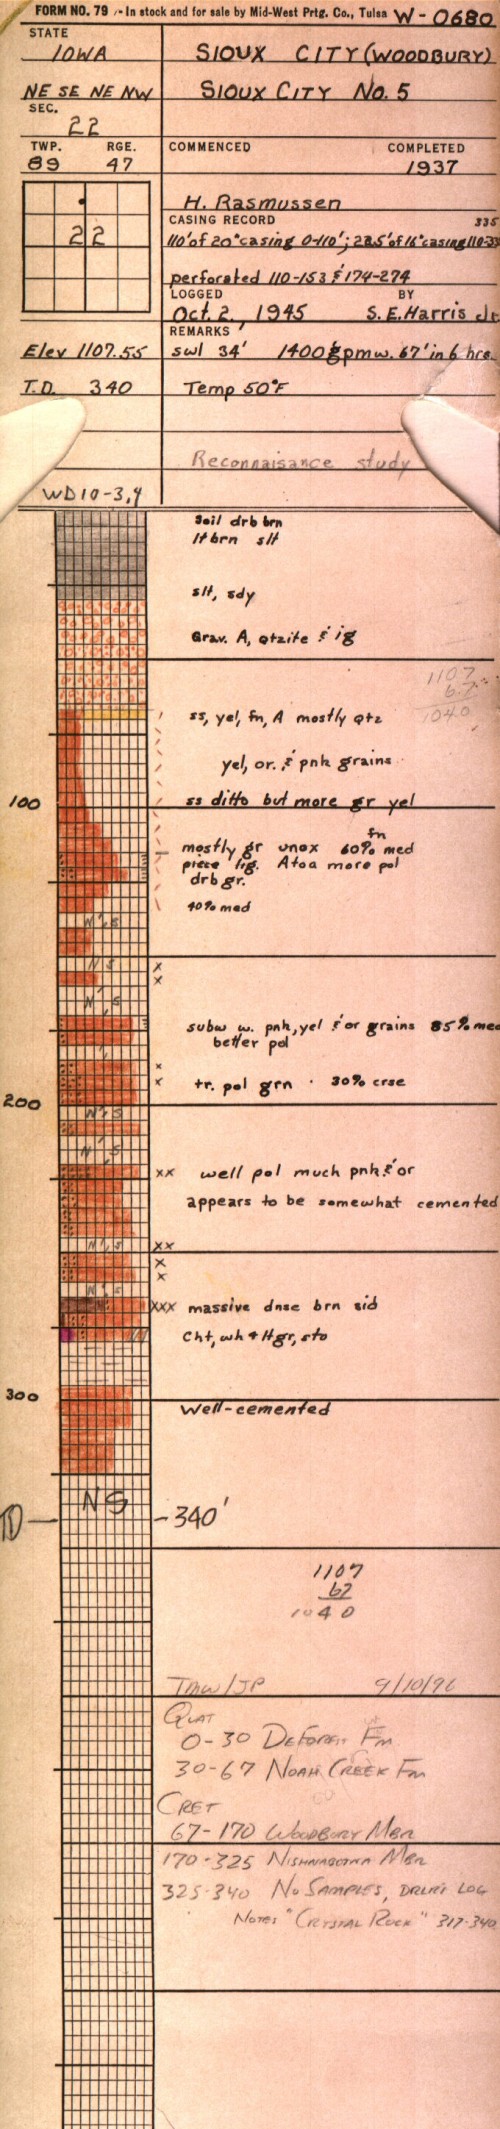 FORM NO. 79 - In stock and for sale by Mid-West Prtg. Co., Tulsa W-0680
STATE
IOWA SIOUX CITY (WOODBURY)
NE SE NE NW SIOUX CITY No. 5
SEC.
22
TWP. RGE. COMMENCED COMPLETED
89 47 1937
H. Rasmussen
CASING RECORD 335
22 110' of 20" casing 0-110'; 225' of 16" casing 110-335
perforated 110-153 & 174-274
LOGGED BY
Oct. 2, 1945 S.E. Harris Jr.
REMARKS
Elev 1107.55 swl 34' 1400 gpm w. 67' in 6 hrs.
T.D. 340 Temp 50°F
Reconnaisance study
WD10-3,4
Soil drb brn
lt brn slt
slt, sdy
Grav. A, qtzite & ig
1107
67
1040
ss, yel, fn, A mostly qtz
yel, or. & pnk grains
100 ss ditto but more gr yel
fn
mostly gr unox 60% med
piece lig. A toa more pol
drb gr.
40% med
N's
N's
N's
subw w. pnk, yel & or grains 85% med
better pol
tr. pol grn 30% crse
200
N's
N's
well pol much pnk & or
appears to be somewhat cemented
N's
N's
massive dnse brn sid
Cht, wh & lt gr, sto
300
Well-cemented
NS
TD -340'
1107
67
1040
TMW/JP 9/10/96
QUAT
0-30 DeForest Fm
30-67 Noah Creek Fm
CRET
67-170 Woodbury Mbr
170-325 Nishnabotna Mbr
325-340 No Samples, Drlr's Log
Notes "Crystal Rock" 317-340